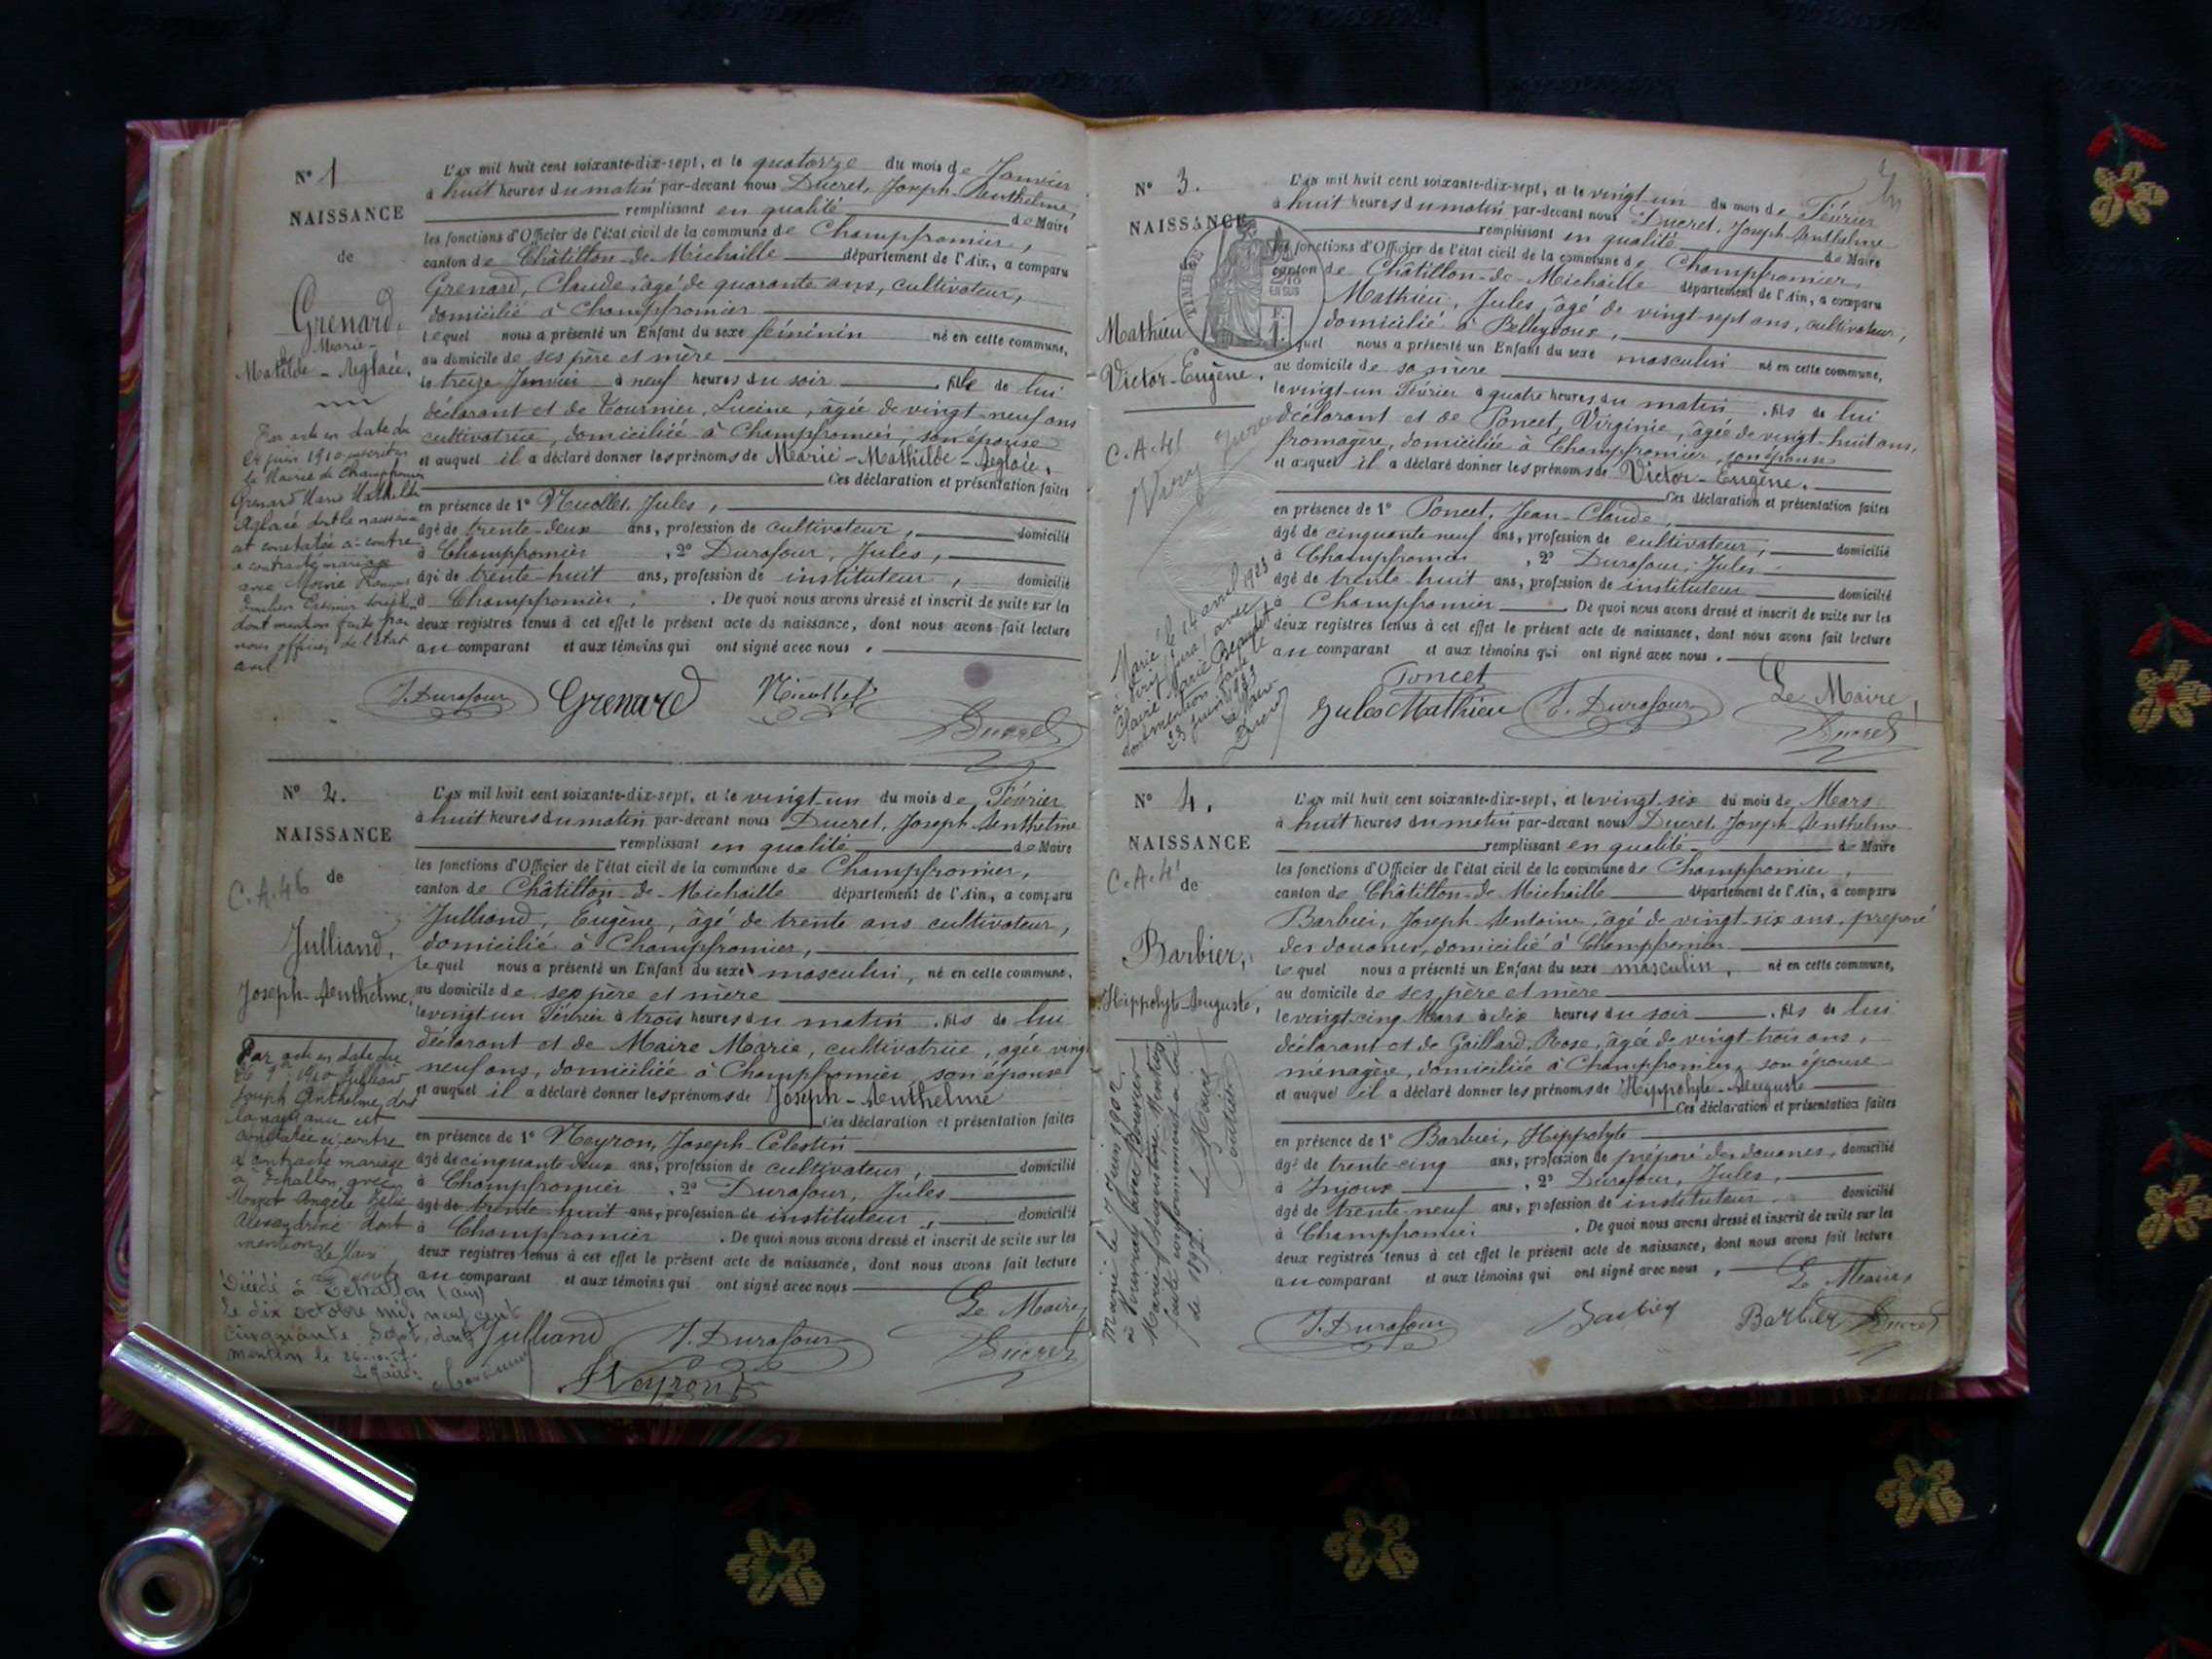 N° 1
NAISSANCE
de
Grenard,
Marie-
Matilde-Aglaée.
Par acte en date du
juin 1910 inscrit
la Mairie de Champfromier
Grenard Marie Mathilde
Aglaé dont la naissance
est constatée ci-contre
a contracté mariage
avec
dont mention faite par
nous officier de l'état
civil
L'an mil huit cent soixante-dix-sept, et le quatorze du mois de Janvier
à huit heures du matin par-devant nous Ducret, Joseph-Anthelme,
remplissant en qualité de Maire
les fonctions d'Officier de l'état civil de la commune de Champfromier,
canton de Châtillon-de-Michaille département de l'Ain, a comparu
Grenard, Claude, âgé de quarante ans, cultivateur,
domicilié à Champfromier
lequel nous a présenté un Enfant du sexe féminin né en cette commune,
au domicile de ses père et mère
le treize Janvier à neuf heures du soir, fille de lui
déclarant et de Tournier, Lucine, âgée de vingt-neuf ans
cultivatrice, domiciliée à Champfromier, son épouse
et auquel il a déclaré donner les prénoms de Marie-Mathilde-Aglaée.
Ces déclaration et présentation faites
en présence de 1° Nicollet, Jules,
âgé de trente-deux ans, profession de cultivateur, domicilié
à Champfromier, 2° Durafour, Jules,
âgé de trente-huit ans, profession de instituteur, domicilié
à Champfromier, . De quoi nous avons dressé et inscrit de suite sur les
deux registres tenus à cet effet le présent acte de naissance, dont nous avons fait lecture
au comparant et aux témoins qui ont signé avec nous.
J. Durafour Grenard Nicollet
Ducret
N° 2.
NAISSANCE
C.A.46 de
Julliand,
Joseph-Anthelme,
Par acte en date du
1910 Julliand
Joseph Anthelme, dont
la naissance est
constatée ci-contre
a contracté mariage
à Echallon avec
Angèle
Alexandrine dont
mention
Le Maire
Décédé à Echallon (Ain)
le dix octobre mil neuf cent
cinquante sept, dont
mention le 26-10-57.
Le Maire:
L'an mil huit cent soixante-dix-sept, et le vingt-un du mois de Février
à huit heures du matin par-devant nous Ducret, Joseph Anthelme
remplissant en qualité de Maire
les fonctions d'Officier de l'état civil de la commune de Champfromier,
canton de Châtillon-de-Michaille département de l'Ain, a comparu
Julliand, Eugène, âgé de trente ans cultivateur,
domicilié à Champfromier,
lequel nous a présenté un Enfant du sexe masculin, né en cette commune,
au domicile de ses père et mère
le vingt-un Février à trois heures du matin, fils de lui
déclarant et de Maire Marie, cultivatrice, agée vingt
neuf ans, domiciliée à Champfromier, son épouse
et auquel il a déclaré donner les prénoms de Joseph-Anthelme
Ces déclaration et présentation faites
en présence de 1° Neyron, Joseph Célestin
âgé de cinquante-deux ans, profession de cultivateur, domicilié
à Champfromier, 2° Durafour, Jules
âgé de trente-huit ans, profession de instituteur, domicilié
à Champfromier . De quoi nous avons dressé et inscrit de suite sur les
deux registres tenus à cet effet le présent acte de naissance, dont nous avons fait lecture
au comparant et aux témoins qui ont signé avec nous
Le Maire,
Julliand J. Durafour Ducret
Neyron
N° 3.
NAISSANCE
de
Mathieu
Victor-Eugène.
C.A.41
Viry Jura
Marié le 14 avril 1923
à Viry (Jura) avec
Marie
dont mention faite le
23 juin 1923
Le Maire
Ducret
TIMBRE
L'an mil huit cent soixante-dix-sept, et le vingt-un du mois de Février
à huit heures du matin par-devant nous Ducret, Joseph Anthelme
remplissant en qualité de Maire
les fonctions d'Officier de l'état civil de la commune de Champfromier,
canton de Châtillon-de-Michaille département de l'Ain, a comparu
Mathieu, Jules, âgé de vingt-sept ans, cultivateur,
domicilié à Belleydoux,
lequel nous a présenté un Enfant du sexe masculin né en cette commune,
au domicile de sa mère
le vingt-un Février à quatre heures du matin, fils de lui
déclarant et de Poncet, Virginie, âgée de vingt-huit ans,
fromagère, domiciliée à Champfromier, son épouse
et auquel il a déclaré donner les prénoms de Victor-Eugène.
Ces déclaration et présentation faites
en présence de 1° Poncet, Jean-Claude,
âgé de cinquante neuf ans, profession de cultivateur, domicilié
à Champfromier, 2° Durafour, Jules
âgé de trente-huit ans, profession de instituteur domicilié
à Champfromier . De quoi nous avons dressé et inscrit de suite sur les
deux registres tenus à cet effet le présent acte de naissance, dont nous avons fait lecture
au comparant et aux témoins qui ont signé avec nous.
Poncet Le Maire,
Jules Mathieu J. Durafour
Ducret
N° 4.
NAISSANCE
C.A.41
de
Barbier,
Hippolyte-Auguste,
Marié le 7 Juin 1902
à avec Bouvier
Marie Mention
faite conformément à la loi
de 1897.
Le Maire
L'an mil huit cent soixante-dix-sept, et le vingt-six du mois de Mars
à huit heures du matin par-devant nous Ducret, Joseph Anthelme
remplissant en qualité de Maire
les fonctions d'Officier de l'état civil de la commune de Champfromier,
canton de Châtillon-de-Michaille département de l'Ain, a comparu
Barbier, Joseph-Antoine, âgé de vingt-six ans, préposé
des douanes, domicilié à Champfromier
lequel nous a présenté un Enfant du sexe masculin, né en cette commune,
au domicile de ses père et mère
le vingt-cinq Mars à dix heures du soir, fils de lui
déclarant et de Gaillard, Rose, âgée de vingt-trois ans,
ménagère, domiciliée à Champfromier, son épouse
et auquel il a déclaré donner les prénoms de Hippolyte-Auguste
Ces déclaration et présentation faites
en présence de 1° Barbier, Hippolyte
âgé de trente-cinq ans, profession de préposé des douanes, domicilié
à Injoux, 2° Durafour, Jules,
âgé de trente-neuf ans, profession de instituteur domicilié
à Champfromier . De quoi nous avons dressé et inscrit de suite sur les
deux registres tenus à cet effet le présent acte de naissance, dont nous avons fait lecture
au comparant et aux témoins qui ont signé avec nous,
Le Maire,
J. Durafour Barbier Barbier Ducret